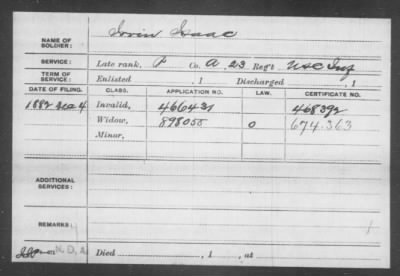 NAME OF SOLDIER: Irvin Isaac
SERVICE: Late rank, P Co. A, 23 Reg't USC Inf
TERM OF SERVICE: Enlisted , 1 Discharged , 1
DATE OF FILING. CLASS. APPLICATION NO. LAW. CERTIFICATE NO.
1882 4 Invalid, 466431 468392
Widow, 898055 0 674.363
Minor,
ADDITIONAL SERVICES:
REMARKS:
N. D. A. Died , 1 , at